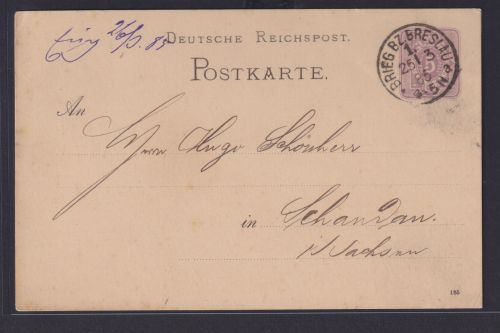 Eing 26/3. 85
DEUTSCHE REICHSPOST.
POSTKARTE.
BRIEG BZ. BRESLAU
25 3
85
5-6N
5
An
Herrn Hugo Schönherr
in Schandau.
i/Sachsen
185